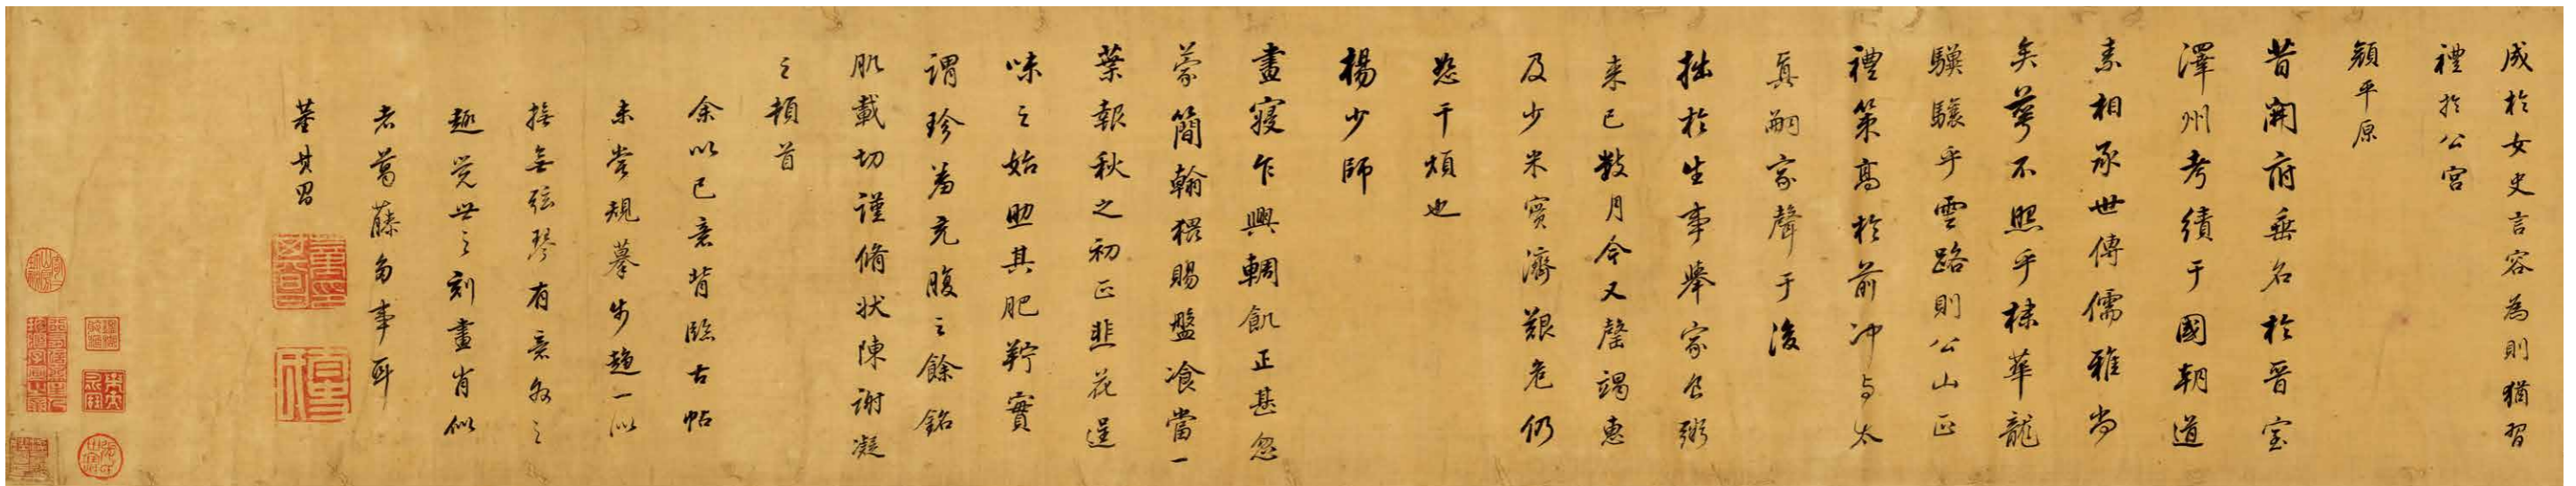 成於女史言容為則猶習
禮於公宮
顏平原
昔開府垂名於晉室
澤州考績于國朝道
素相承世傳儒雅尚
矣夢不照乎棣華龍
驥驤乎雲路則公山正
禮策高於前沖与太
真嗣家聲于後
拙於生事舉家食粥
来已數月今又罄竭惠
及少米實濟艱危仍
恕干煩也
楊少師
晝寢乍興輖飢正甚忽
蒙簡翰猥賜盤飡當一
葉報秋之初正韭花逞
味之始助其肥羜實
謂珍羞充腹之餘銘
肌載切謹脩狀陳謝凝
之頓首
余以己意背臨古帖
未嘗規摹步趨一似
撫無弦琴有意外之
趣覺世之刻畫肖似
者葛藤多事耳
董其昌